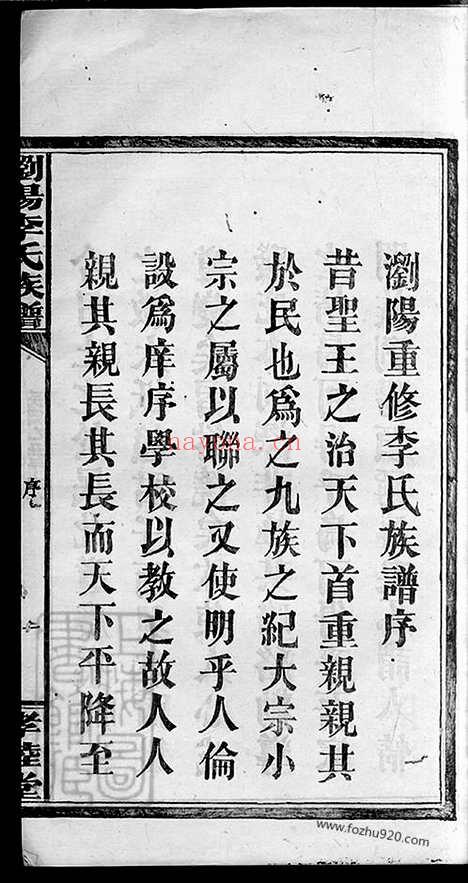 瀏陽重修李氏族譜序
昔聖王之治天下首重親親其
於民也爲之九族之紀大宗小
宗之屬以聯之又使明乎人倫
設爲庠序學校以教之故人人
親其親長其長而天下平降至
瀏陽李氏族譜
序
孝睦堂
www.fozhu920.com